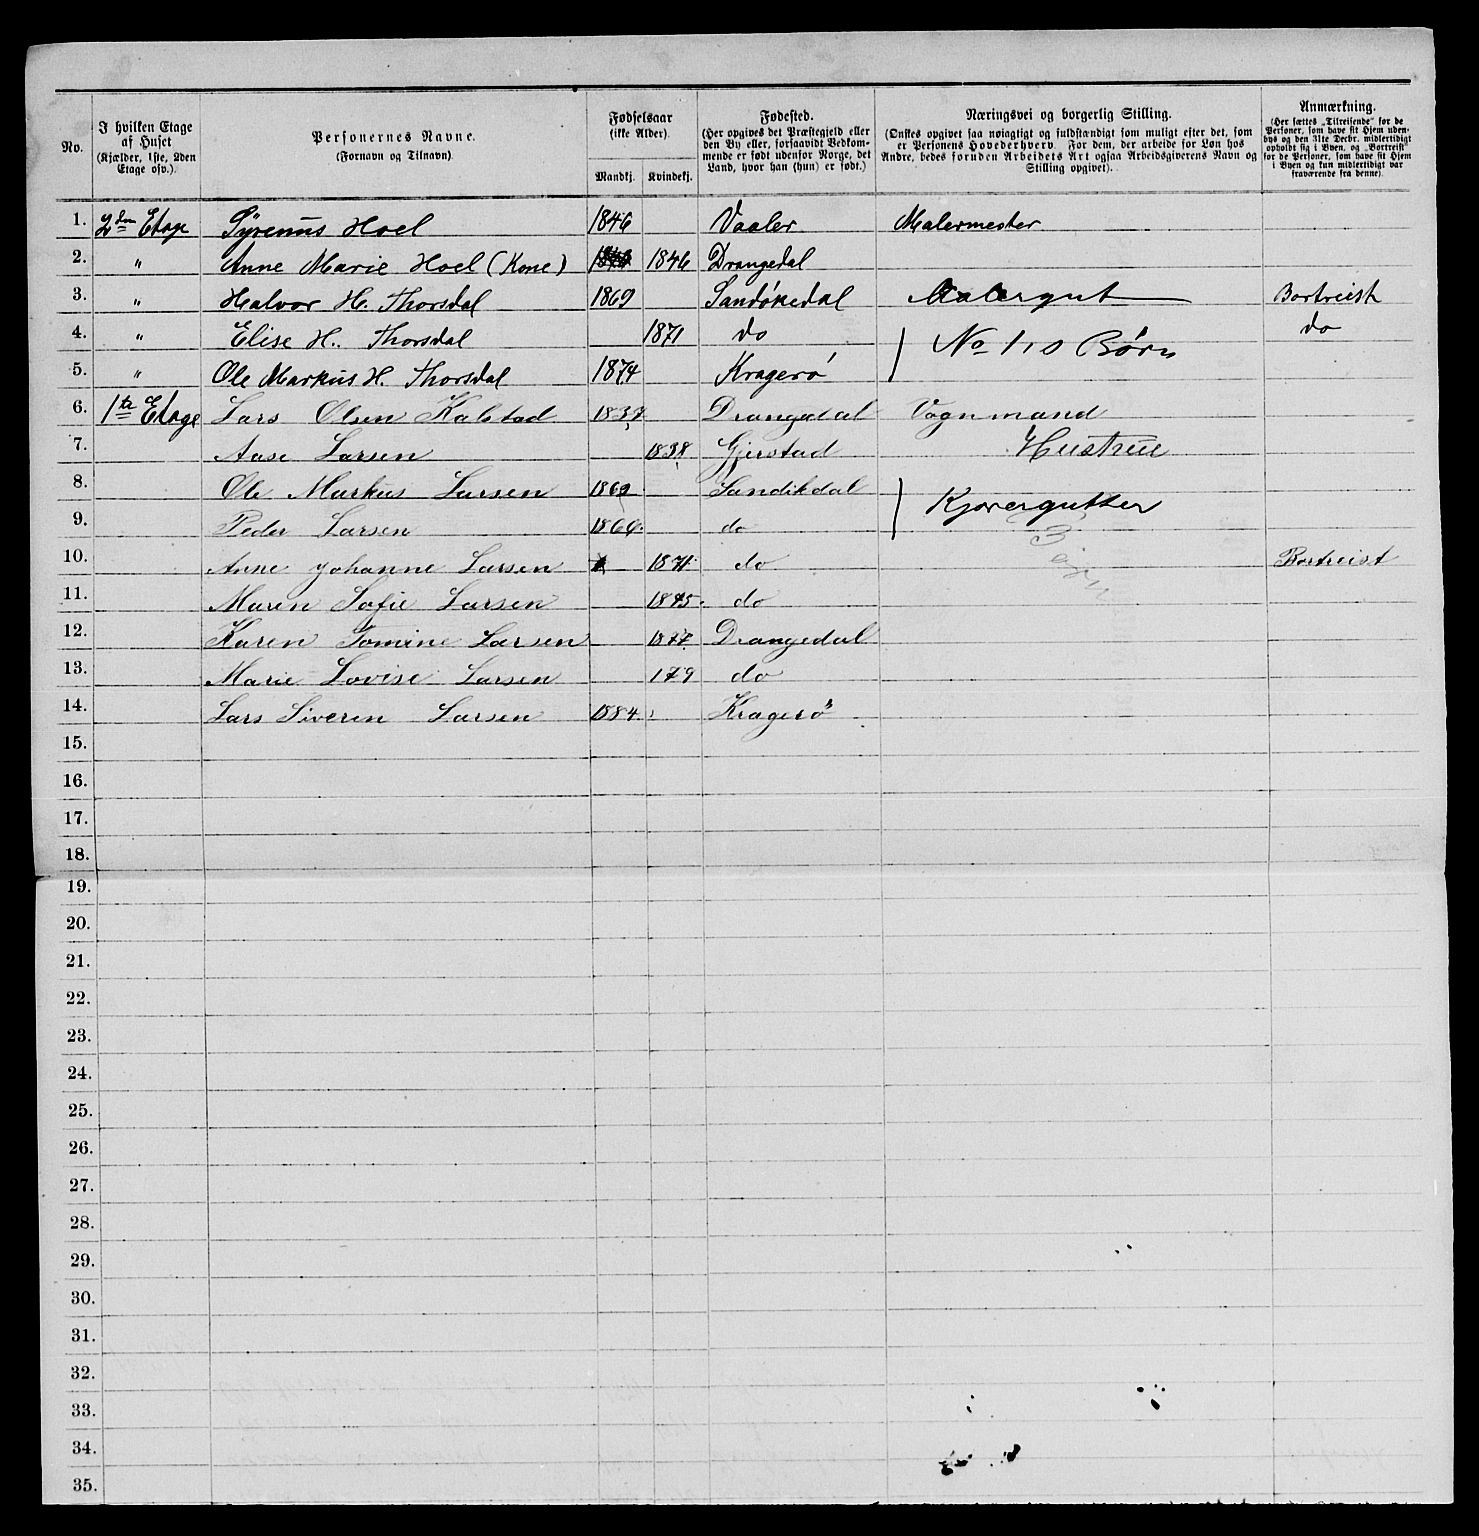 No.
I hvilken Etage af Huset (Kjælder, 1ste, 2den Etage osv.).
Personernes Navne. (Fornavn og Tilnavn)
Fødselsaar (ikke Alder). Mandkj. Kvindekj.
Fødested. (Her opgives det Præstegjeld eller den By eller, forsaavidt Vedkommende er født udenfor Norge, det Land, hvor han (hun) er født.)
Næringsvei og borgerlig Stilling. (Ønskes opgivet saa nøiagtigt og fuldstændigt som muligt efter det, som er Personens Hovederhverv. For dem, der arbeide for Løn hos Andre, bedes foruden Arbeidets Art ogsaa Arbeidsgiverens Navn og Stilling opgivet).
Anmærkning. (Her sættes „Tilreisende" for de Personer, som have sit Hjem udenbys og den 31te Decbr. midlertidigt opholdt sig i Byen, og „Bortreist" for de Personer, som have sit Hjem i Byen og kun midlertidigt var fraværende fra denne).
1. 2den Etage Syrenus Hoel 1846 Vaaler Malermester
2. " Anne Marie Hoel (Kone) 1846 Drangedal
3. " Halvor H. Thorsdal 1869 Sandøkedal Malergut Bortreist
4. " Elise H. Thorsdal 1871 do No 1,s Børn do
5. " Ole Markus H. Thorsdal 1874 Kragerø
6. 1te Etage Lars Olsen Kalstad 1837 Drangedal Vognmand
7. Aase Larsen 1838 Gjerstad Hustrue
8. Ole Markus Larsen 1869 Sandikdal Kjørergutter
9. Peder Larsen 1866 do
10. Anne Johanne Larsen 1871 do Bortreist
11. Maren Sofie Larsen 1875 do
12. Karen Tomine Larsen 1877 Drangedal
13. Marie Lovise Larsen 179 do
14. Lars Siverin Larsen 1884 Kragerø
15.
16.
17.
18.
19.
20.
21.
22.
23.
24.
25.
26.
27.
28.
29.
30.
31.
32.
33.
34.
35.